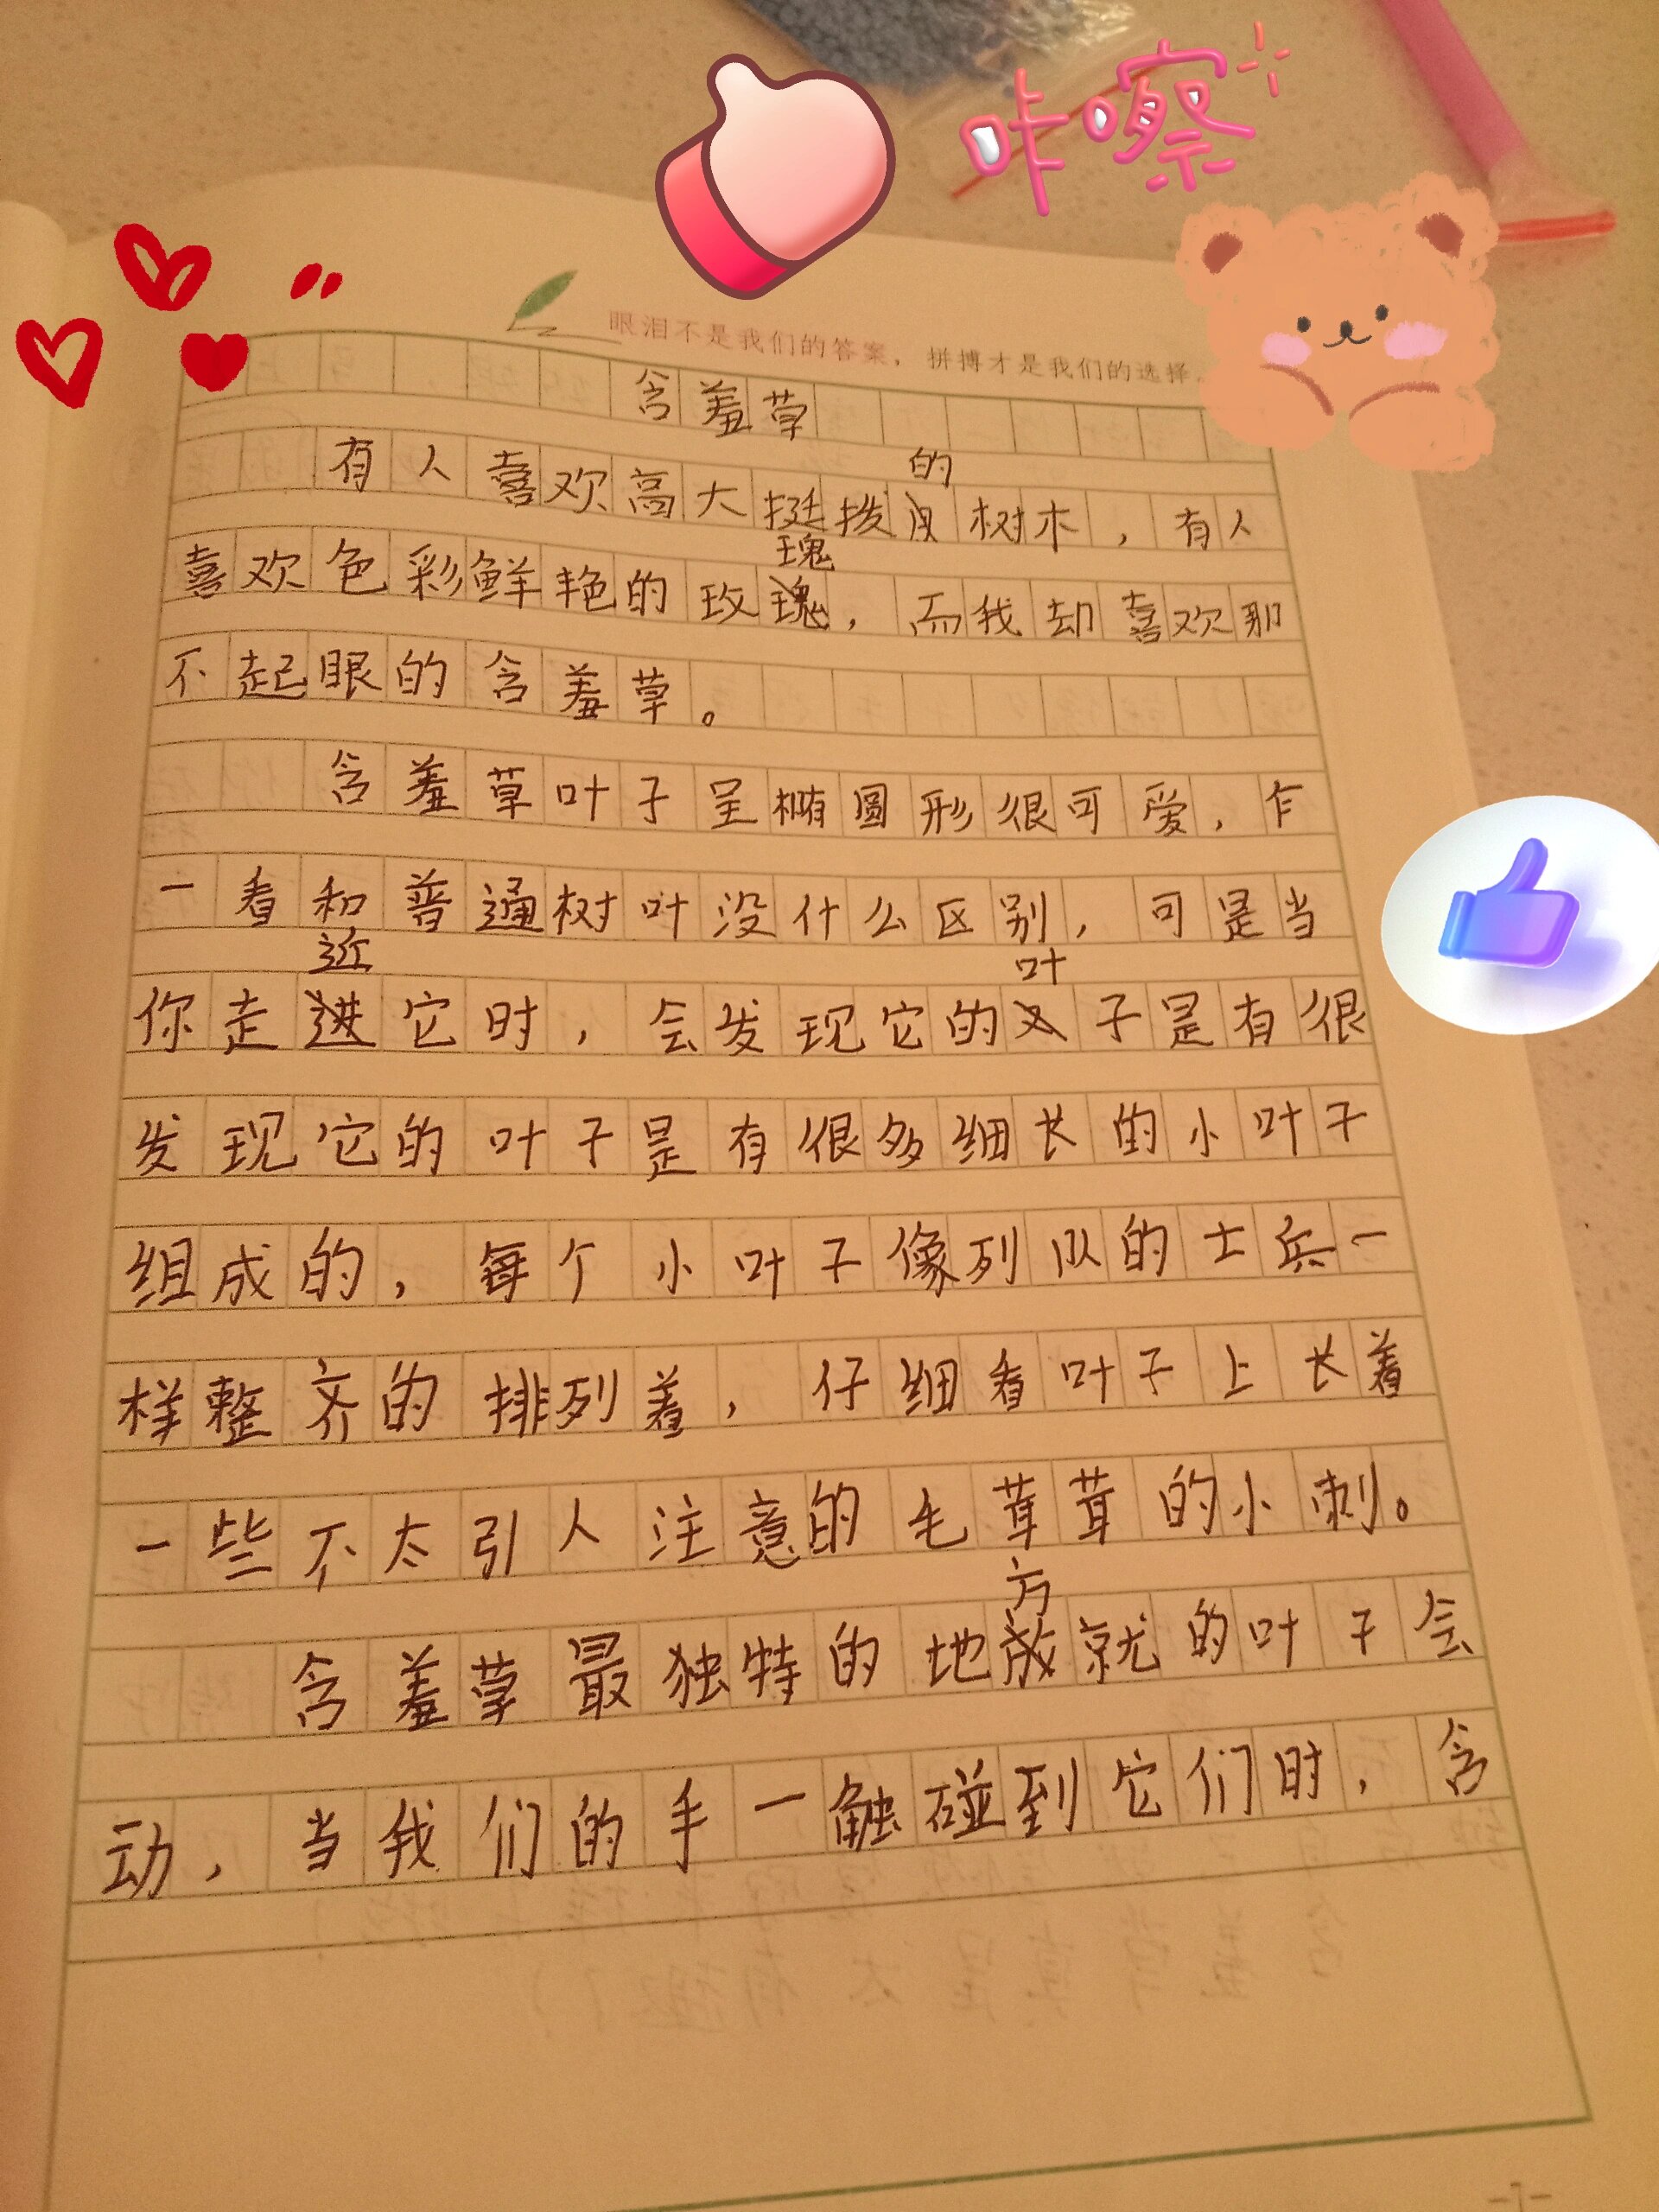 咔嚓
眼泪不是我们的答案，拼搏才是我们的选择。
含羞草
有人喜欢高大挺拨的树木，有人
喜欢色彩鲜艳的玫瑰，而我却喜欢那
不起眼的含羞草。
含羞草叶子呈椭圆形很可爱，乍
一看和普通树叶没什么区别，可是当
你走近它时，会发现它的叶子是有很
发现它的叶子是有很多细长的小叶子
组成的，每个小叶子像列队的士兵一
样整齐的排列着，仔细看叶子上长着
一些不太引人注意的毛茸茸的小刺。
含羞草最独特的地方就的叶子会
动，当我们的手一触碰到它们时，含